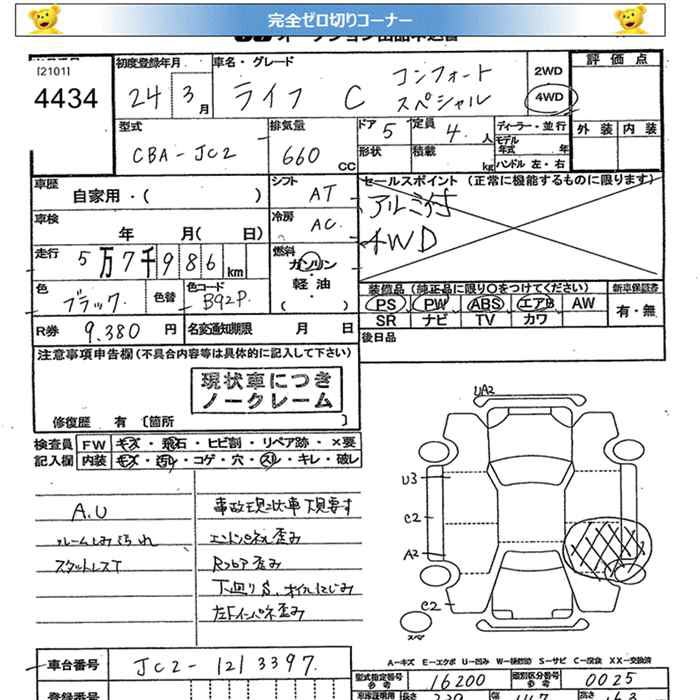 完全ゼロ切りコーナー
[2101]
4434
初度登録年月
24年3月
車名・グレード
ライフ C コンフォート
スペシャル
2WD
4WD
評価点
外装 内装
型式
CBA-JC2
排気量
660 CC
ドア 5
定員 4 人
形状
積載 kg
ディーラー・並行
モデル年式 年
ハンドル 左・右
車歴
自家用・( )
シフト
AT
セールスポイント (正常に機能するものに限ります)
アルミ付
4WD
車検
年 月( 日)
冷房
AC
走行
5万7千986km
燃料
ガソリン
・
軽油
・
( )
色
ブラック
色替
色コード
B92P
装備品(純正品に限り○をつけてください)
新車保証書
PS PW ABS エアB AW
有・無
SR ナビ TV カワ
R券 9,380円
名変通知期限 月 日
後日品
注意事項申告欄(不具合内容等は具体的に記入して下さい)
現状車につき
ノークレーム
修復歴 有 〔箇所 〕
検査員
記入欄
FW キズ・飛石・ヒビ割・リペア跡・×要
内装 キズ・汚れ・コゲ・穴・スレ・キレ・破レ
A.U
ルームしみ汚れ
スタットレスT
事故現状車下見要す
エンドパネル歪み
Rフロア歪み
下廻りS、オイルにじみ
左Fインパネ歪み
UA2
U3
C2
A2
C2
スペア
A－キズ E－エクボ U－凹み W－補修跡 S－サビ C－腐食 XX－交換済
車台番号
JC2-1213397
型式指定番号
参考
16200
類別区分番号
参考
0025
登録番号